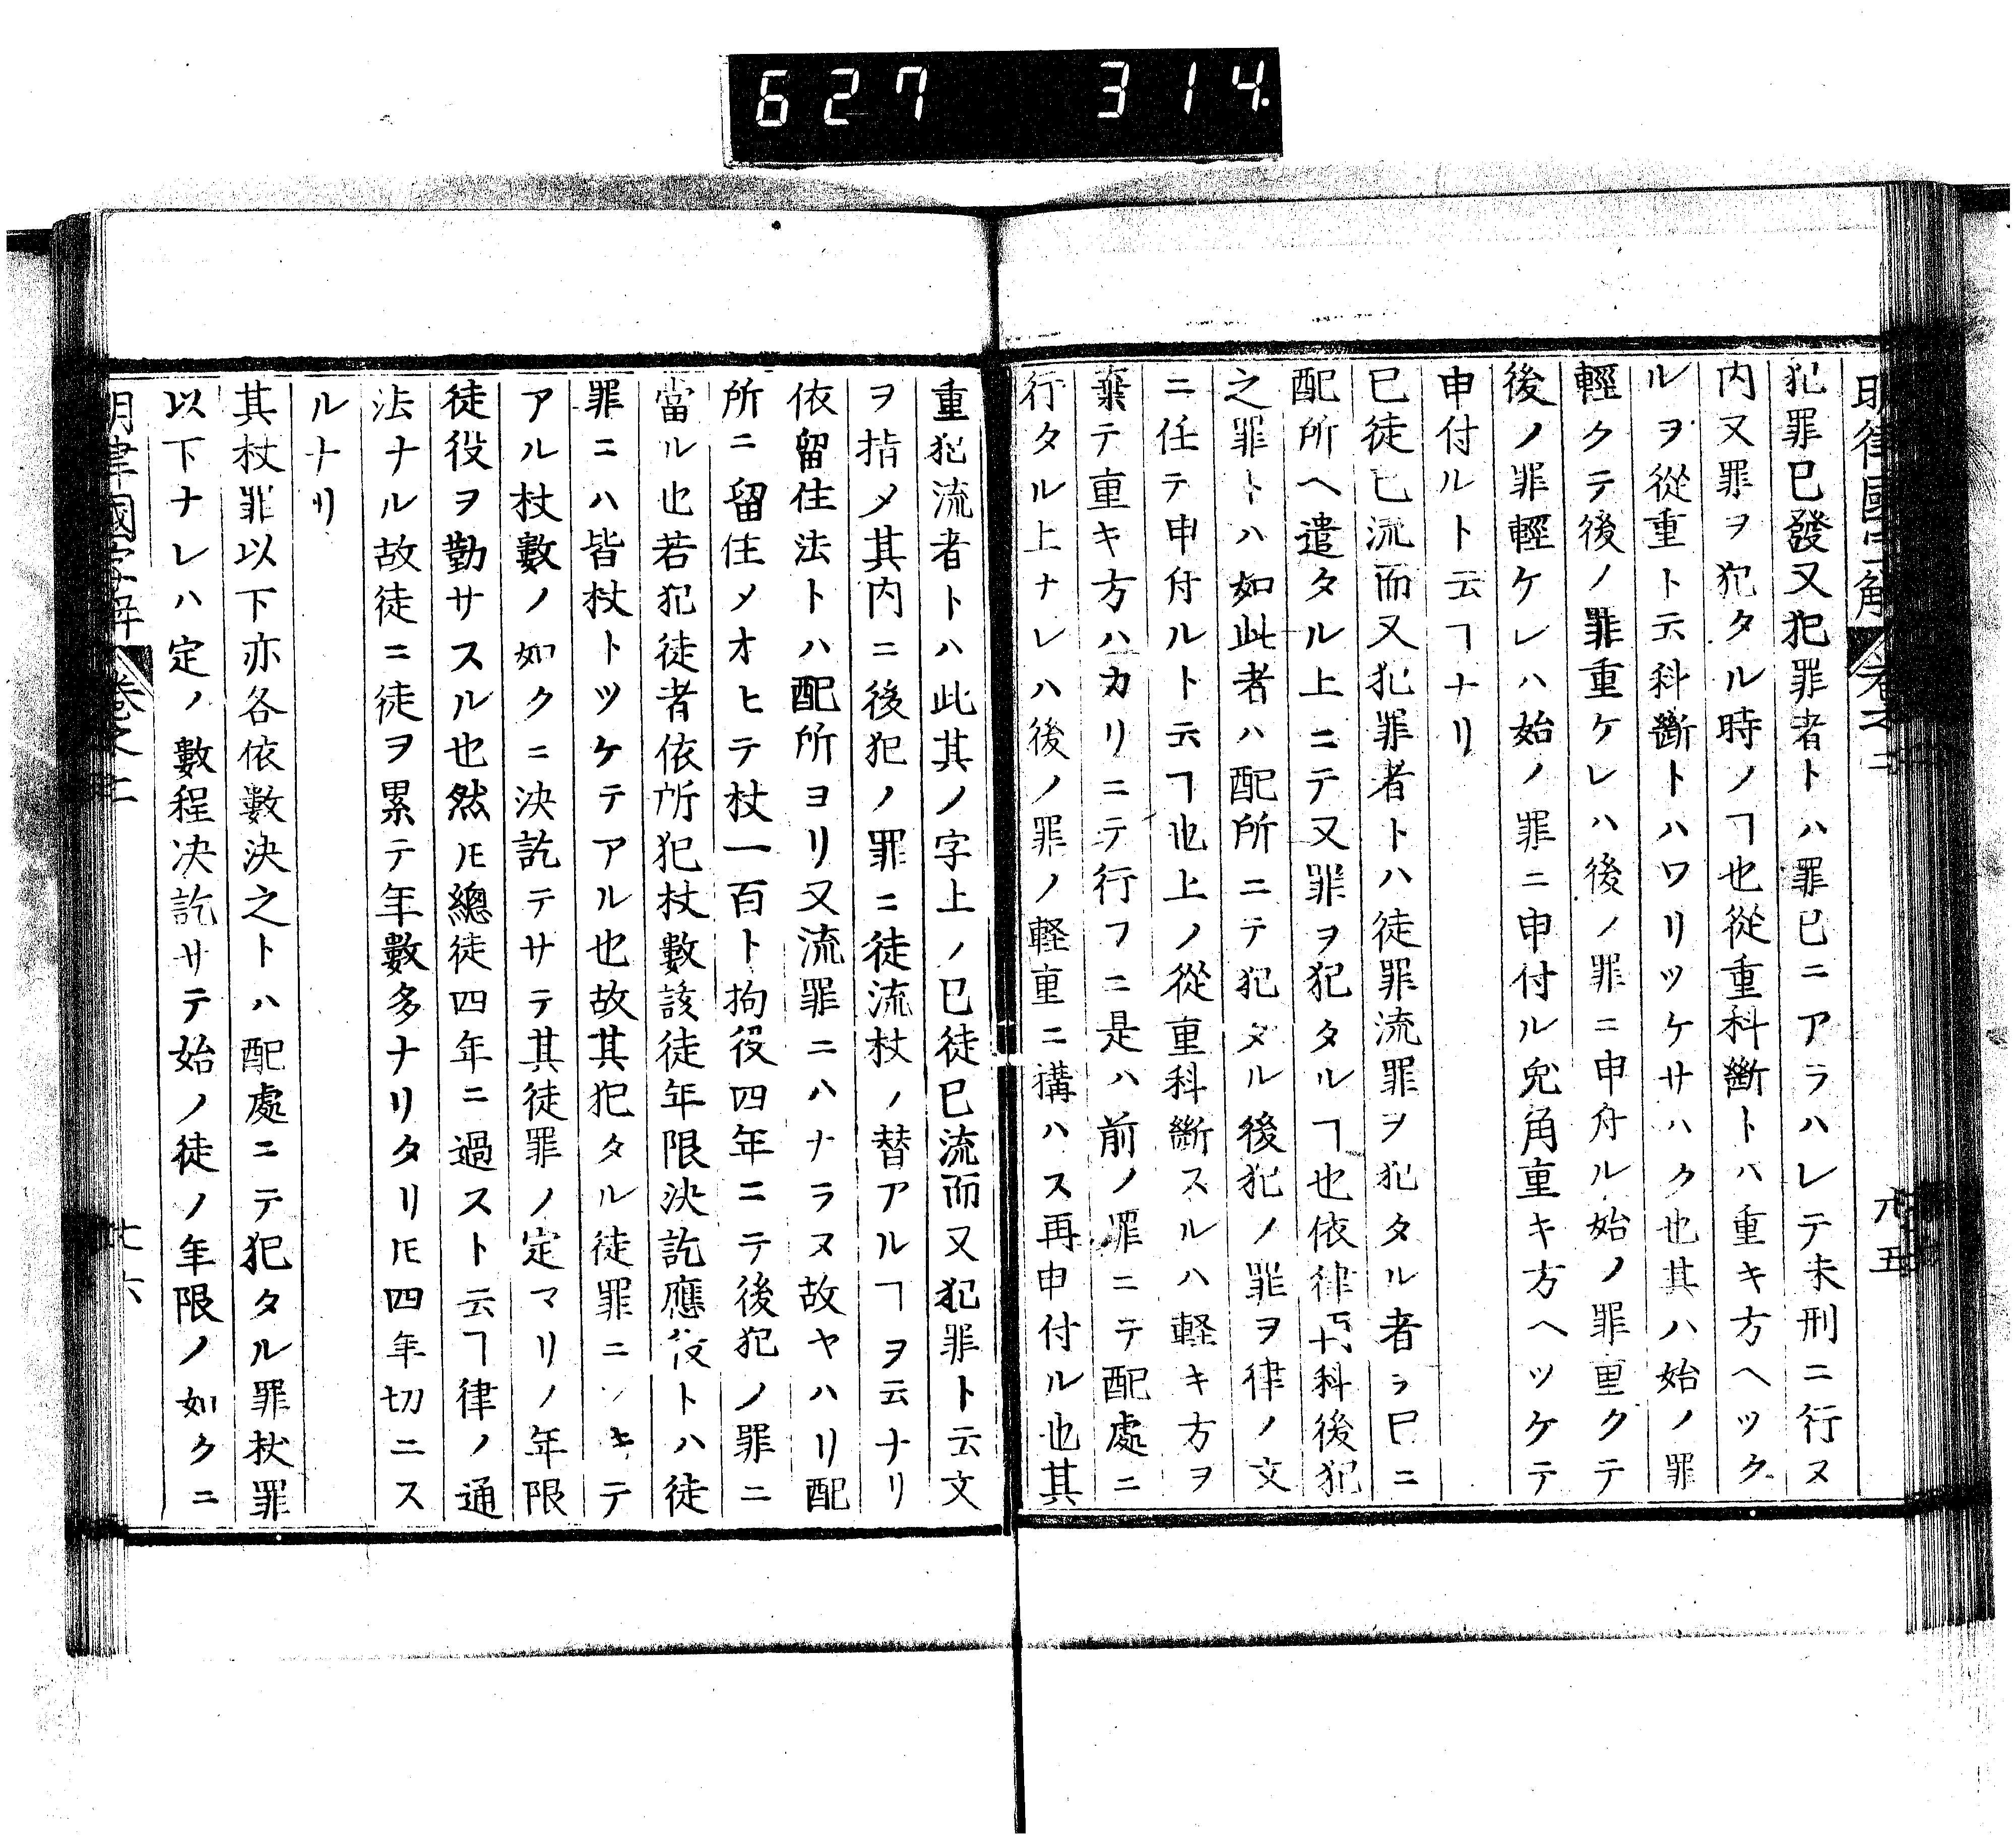 627 314
明律國字解 卷之二 廿五
犯罪已發又犯罪者トハ罪已ニアラハレテ未刑ニ行ヌ
内又罪ヲ犯タル時ノヿ也從重科斷トハ重キ方ヘツク
ルヲ從重ト云科斷トハワリツケサハク也其ハ始ノ罪
輕クテ後ノ罪重ケレハ後ノ罪ニ申付ル始ノ罪重クテ
後ノ罪輕ケレハ始ノ罪ニ申付ル兊角重キ方ヘツケテ
申付ルト云ヿナリ
已徒已流而又犯罪者トハ徒罪流罪ヲ犯タル者ヲ已ニ
配所ヘ遣タル上ニテ又罪ヲ犯タルヿ也依律科後犯
之罪トハ如此者ハ配所ニテ犯タル後犯ノ罪ヲ律ノ文
ニ任テ申付ルト云ヿ也上ノ從重科斷スルハ軽キ方ヲ
棄テ重キ方ハカリニテ行フニ是ハ前ノ罪ニテ配處ニ
行タル上ナレハ後ノ罪ノ軽重ニ構ハス再申付ル也其
重犯流者トハ此其ノ字上ノ已徒已流而又犯罪ト云文
ヲ指メ其内ニ後犯ノ罪ニ徒流杖ノ替アルヿヲ云ナリ
依留住法トハ配所ヨリ又流罪ニハナラヌ故ヤハリ配
所ニ留住メオヒテ杖一百ト拘役四年ニテ後犯ノ罪ニ
當ル也若犯徒者依所犯杖數該徒年限決訖應役トハ徒
罪ニハ皆杖トツケテアル也故其犯タル徒罪ニツキテ
アル杖數ノ如クニ決訖テサテ其徒罪ノ定マリノ年限
徒役ヲ勤サスル也然ㇾ𪜈總徒四年ニ過スト云ヿ律ノ通
法ナル故徒ニ徒ヲ累テ年數多ナリタリ𪜈四年切ニス
ルナリ
其杖罪以下亦各依數決之トハ配處ニテ犯タル罪杖罪
以下ナレハ定ノ數程决訖サテ始ノ徒ノ年限ノ如クニ
明律國字解 卷之二 廿六